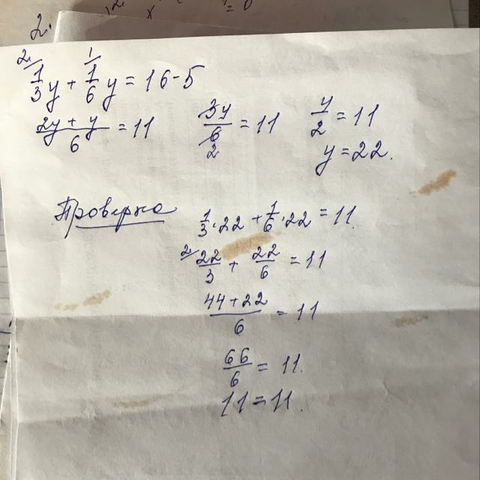 2.
2/ 1/
1/3 y + 1/6 y = 16 - 5
(2y + y)/6 = 11   3y/6 = 11   y/2 = 11
2   y = 22.
Проверка
1/3 · 22 + 1/6 · 22 = 11.
2/ 22/3 + 22/6 = 11
(44 + 22)/6 = 11
66/6 = 11.
11 = 11.